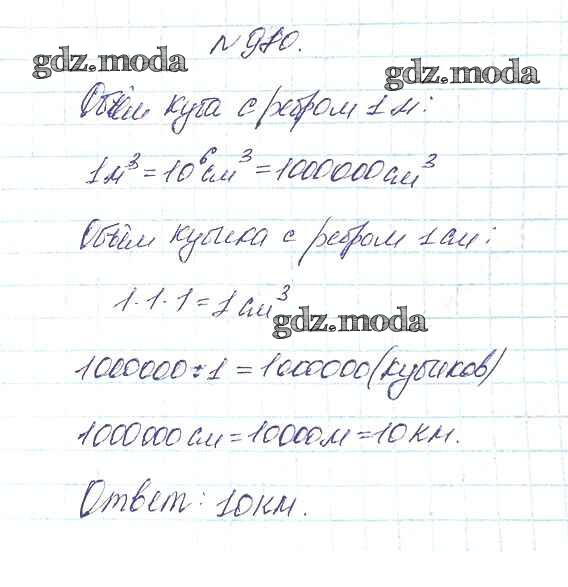 № 980.
gdz.moda
gdz.moda
Объём куба с ребром 1 м:
1м³ = 10⁶см³ = 1000000см³
Объём кубика с ребром 1см:
1·1·1 = 1см³
gdz.moda
1000000:1 = 1000000(кубиков)
1000000см = 10000м = 10км.
Ответ: 10км.